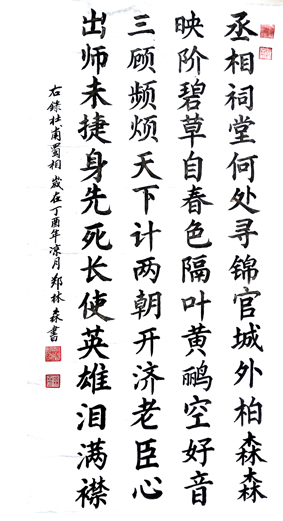 丞相祠堂何处寻锦官城外柏森森
映阶碧草自春色隔叶黄鹂空好音
三顾频烦天下计两朝开济老臣心
出师未捷身先死长使英雄泪满襟
右録杜甫蜀相 岁在丁酉年凉月郑林森书